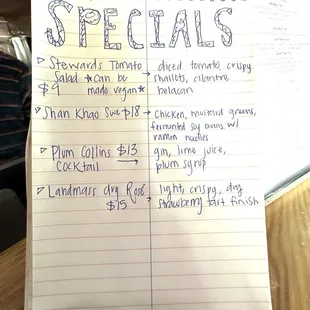 SPECIALS
▷ Stewards Tomato → diced tomato, crispy
Salad *can be shallots, cilantro,
$9 made vegan* belacan
▷ Shan Khao Swe $18 → chicken, mustard greens,
fermented soy beans w/
ramen noodles
▷ Plum Collins $13 → gin, lime juice,
COCKTail plum syrup
▷ Landmass dry Rosé → light, crispy, dry
$15 strawberry tart finish